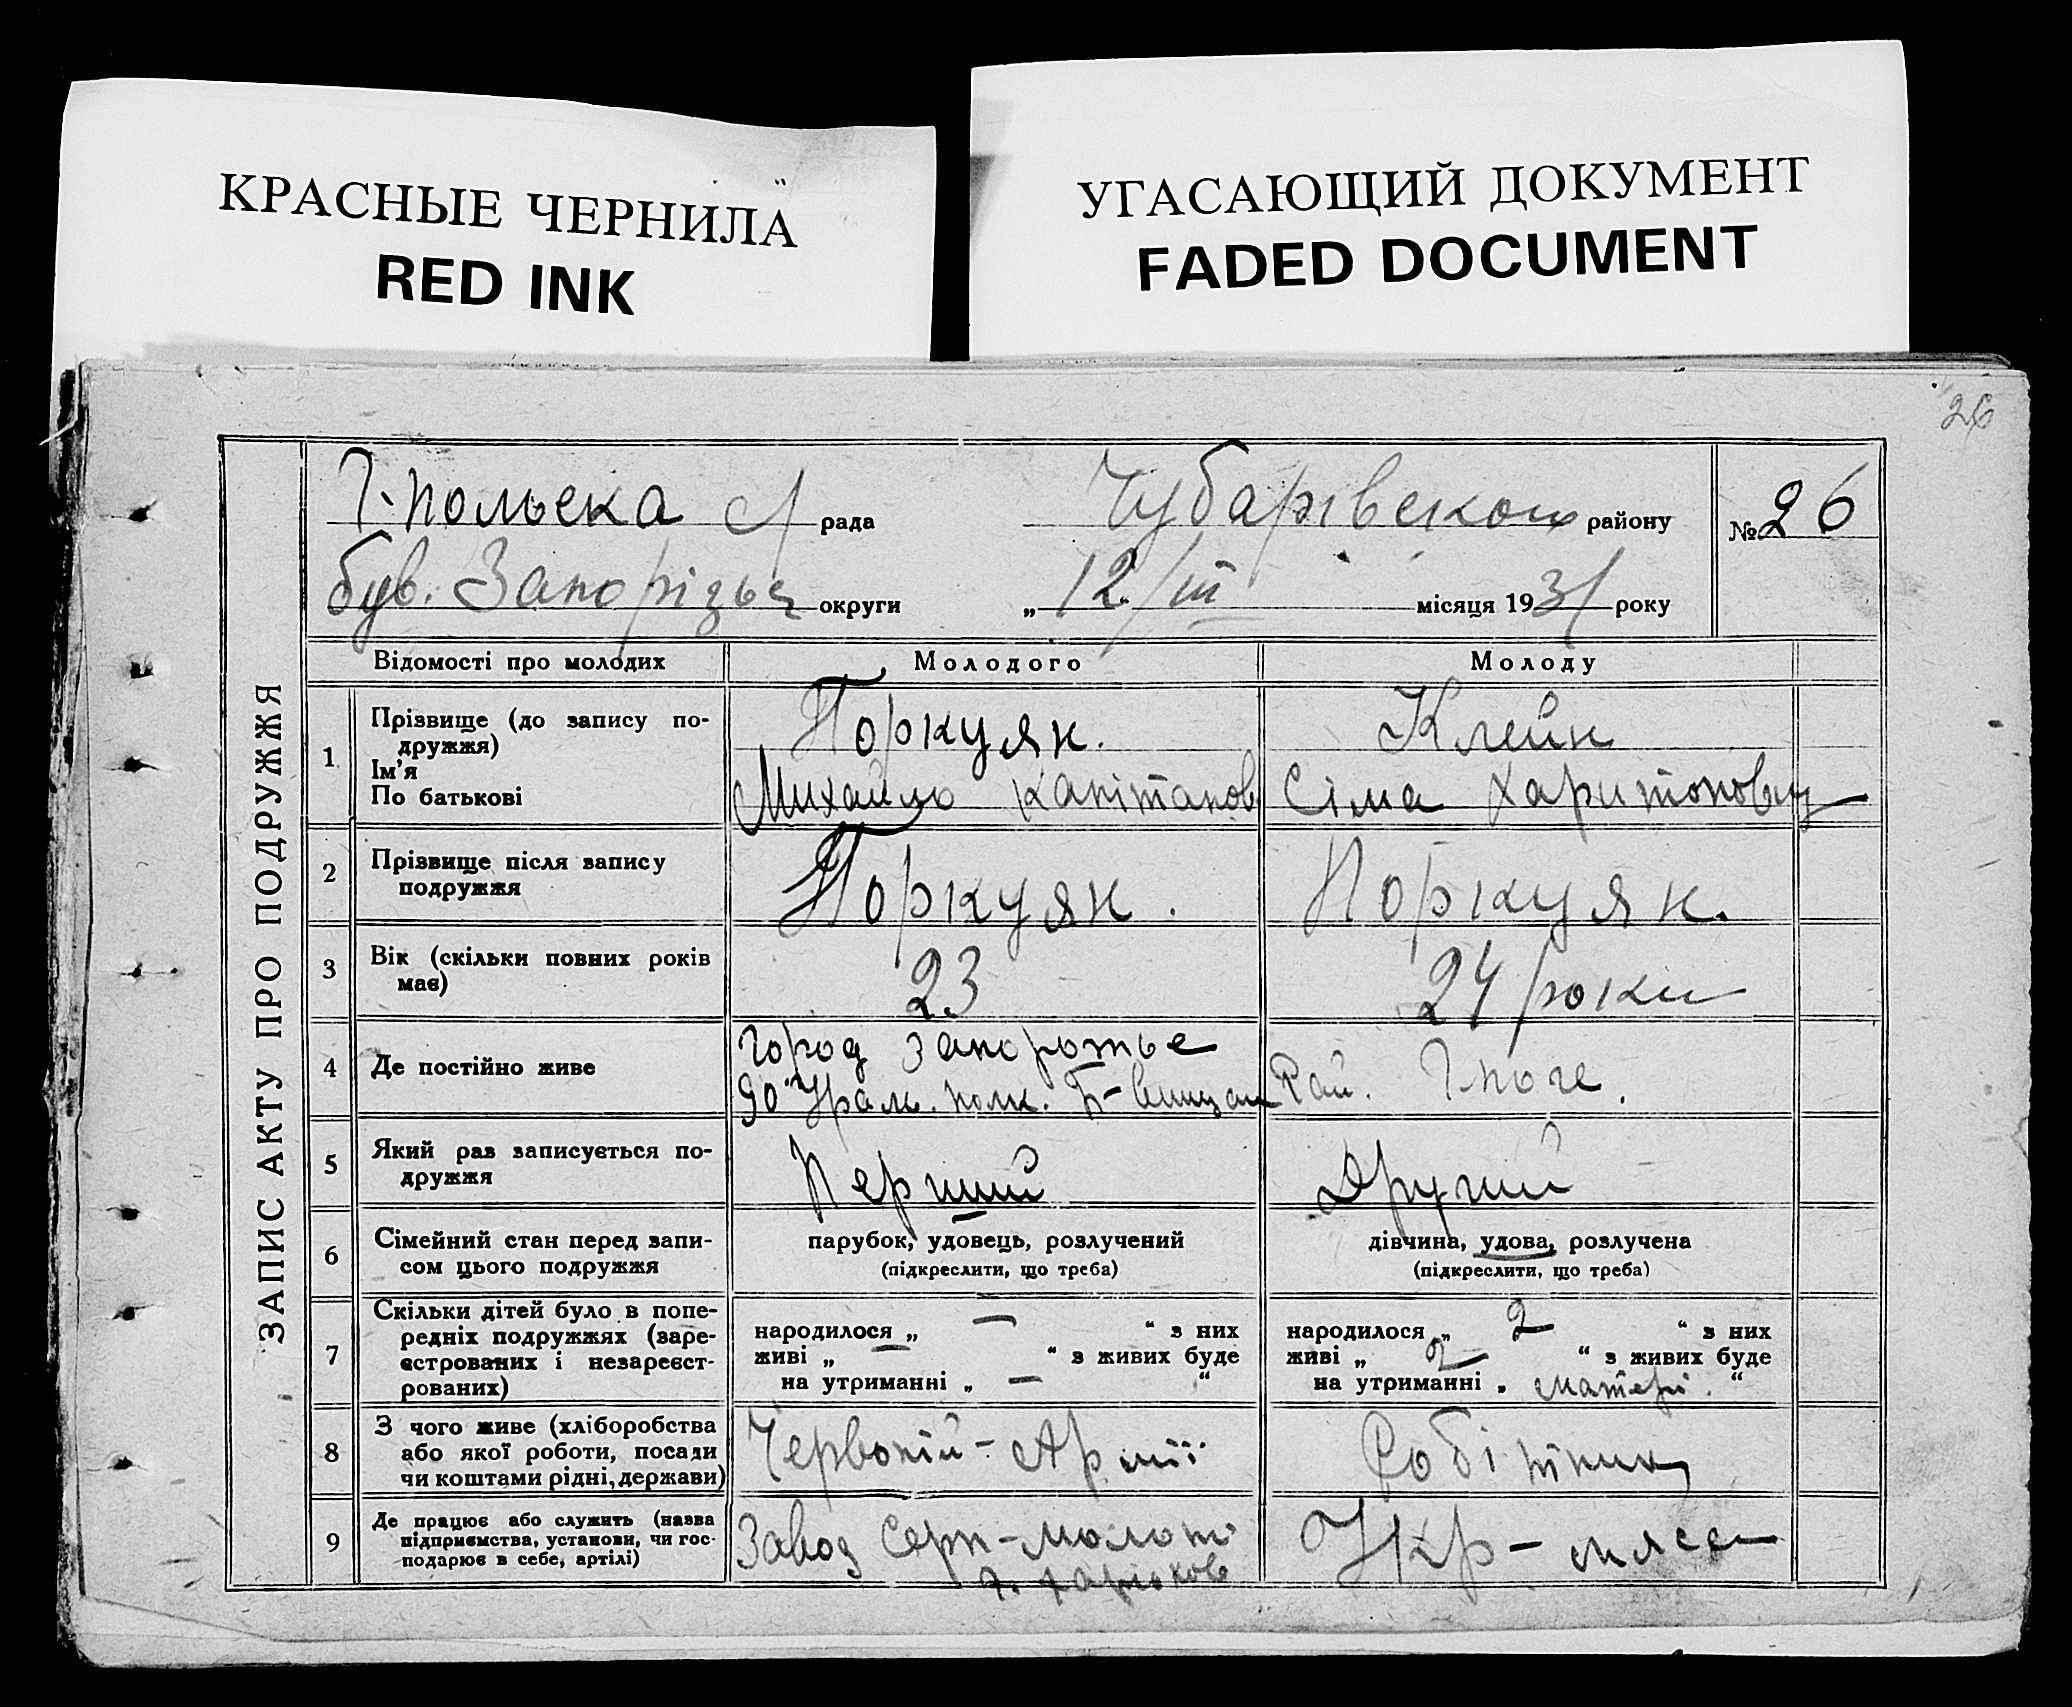 КРАСНЫЕ ЧЕРНИЛА
RED INK
УГАСАЮЩИЙ ДОКУМЕНТ
FADED DOCUMENT
26
ЗАПИС АКТУ ПРО ПОДРУЖЖЯ
Г-польська с/ рада Чубарівского району № 26
був. Запорізьк округи „ 12/III місяця 1931 року
Відомості про молодих Молодого Молоду
1 Прізвище (до запису по-
дружжя)
Ім’я
По батькові
Поркуян.
Михайло Капітанов
Клейн
Сіма Харитонов
2 Прізвище після запису
подружжя
Поркуян.
Поркуян.
3 Вік (скільки повних років
має)
23
24 роки
4 Де постійно живе
город Запорожье
90 Урал. полк.
Рай. Г-поле.
5 Який раз записується по-
дружжя
Перший
Другий
6 Сімейний стан перед запи-
сом цього подружжя
парубок, удовець, розлучений
(підкреслити, що треба)
дівчина, удова, розлучена
(підкреслити, що треба)
7 Скільки дітей було в попе-
редніх подружжях (заре-
єстрованих і незареєст-
рованих)
народилося „ — “ з них
живі „ — “ з живих буде
на утриманні „ — “
народилося „ 2 “ з них
живі „ 2 “ з живих буде
на утриманні „ матері. “
8 З чого живе (хліборобства
або якої роботи, посади
чи коштами рідні, держави)
Червоній-Армії
Робітниц
9 Де працює або служить (назва
підприємства, установи, чи гос-
подарює в себе, артілі)
Завод Серп-молот
г. Харькове
Укр-мясо